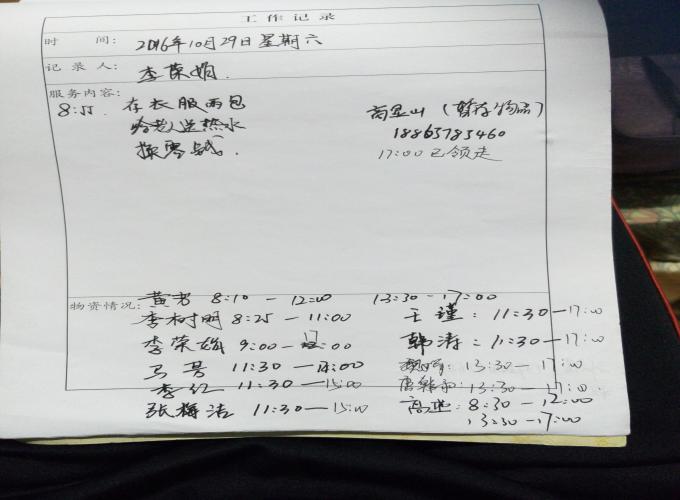 工作记录
时 间: 2016年10月29日星期六
记录人: 李荣娟.
服务内容:
8:55. 存衣服两包
给老人送热水
换零钱.
高显山 (暂存物品)
18863783460
17:00已领走
物资情况:
黄芳 8:10 — 12:00 13:30 — 17:00
李树明 8:25 — 11:00
王瑾: 11:30 — 17:00
李荣娟 9:00 — 17:00
韩涛: 11:30 — 17:00
马芳 11:30 — :00
13:30 — 17:00
李红 11:30 — 15:00
13:30 — 17:00.
张梅洁 11:30 — 15:00
高进: 8:30 — 12:00
13:30 — 17:00